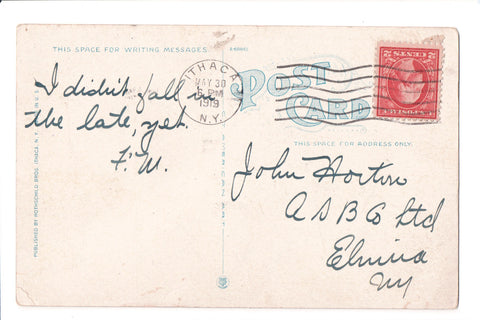 THIS SPACE FOR WRITING MESSAGES.
ITHACA
MAY 30
5 PM
1919
N.Y.
POST
CARD
2 CENTS 2
THIS SPACE FOR ADDRESS ONLY.
I didn't fall in
the lake, yet.
F.M.
John Horton
A S B Co Ltd
Elmira
NY
PUBLISHED BY ROTHSCHILD BROS. ITHACA, N.Y.